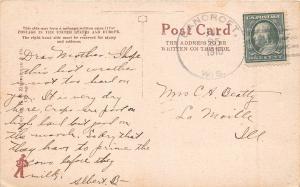 This side may have a message written upon it for
POSTAGE IN THE UNITED STATES AND EUROPE.
The right hand side is reserved for
stamp and address.
Post Card
THE ADDRESS TO BE
WRITTEN ON THIS SIDE.
1910
WIS.
Dear Mother: I hope
this hot weather
is not too hard on
you. It is very dry
here. Crops are good on
high land but poor on
the marsh. So dry that
they have to prime the
cows before they
milk.
Albert B
Mrs C H Beatty
La Moille
Ill